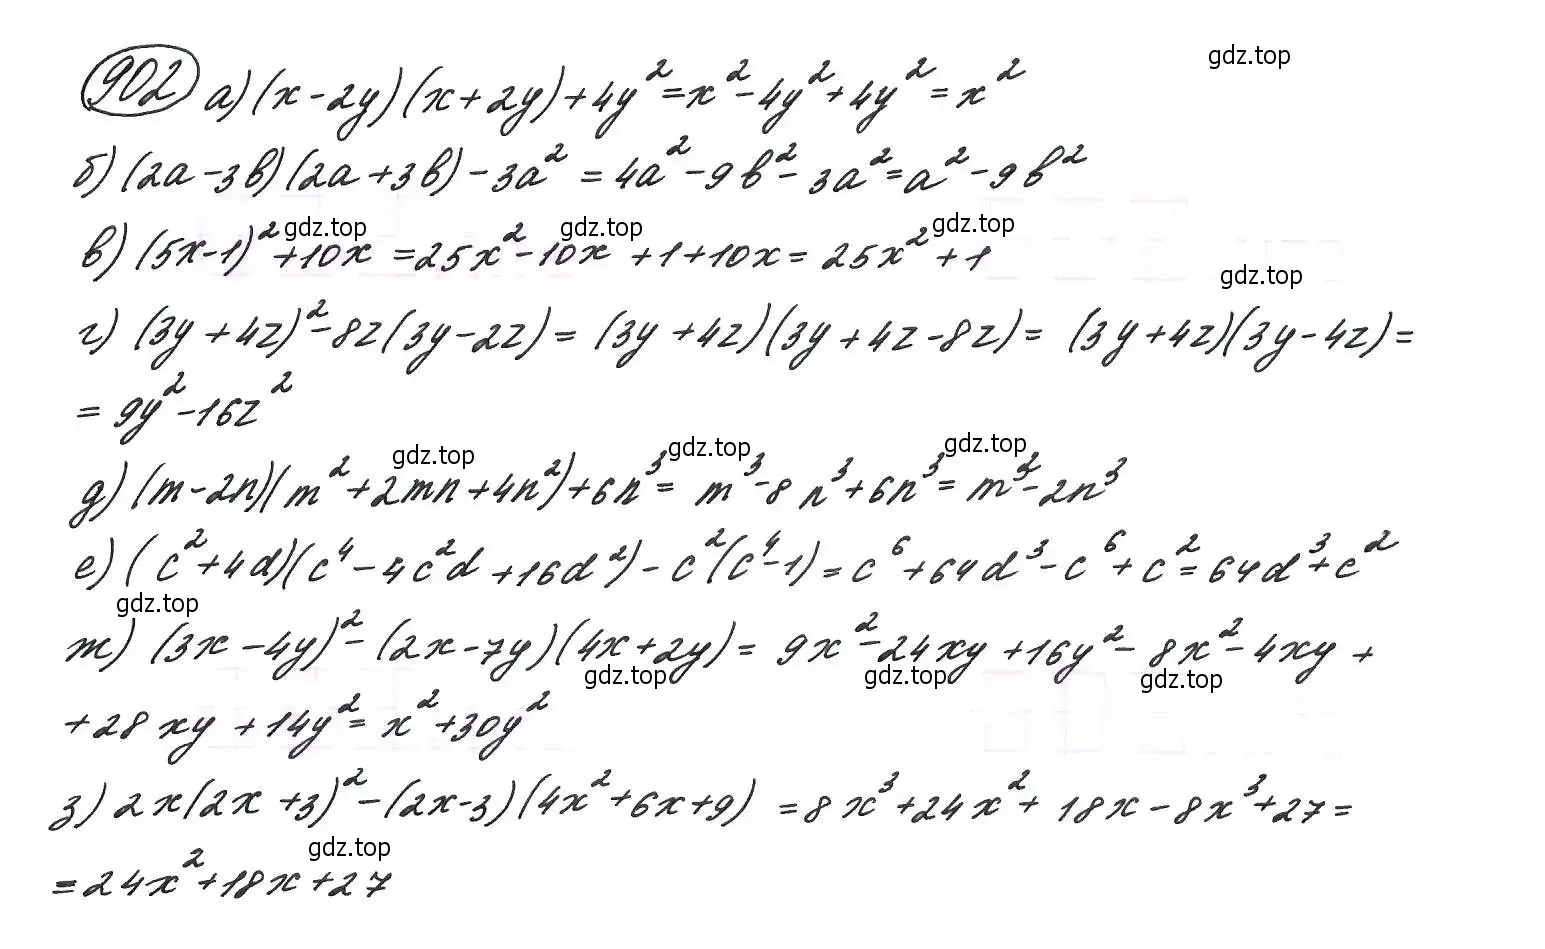 gdz.top
902 а) (x-2y)(x+2y)+4y²=x²-4y²+4y²=x²
б) (2a-3b)(2a+3b)-3a²=4a²-9b²-3a²=a²-9b²
gdz.top gdz.top gdz.top
в) (5x-1)²+10x=25x²-10x+1+10x=25x²+1
gdz.top
г) (3y+4z)²-8z(3y-2z)=(3y+4z)(3y+4z-8z)=(3y+4z)(3y-4z)=
=9y²-16z²
gdz.top gdz.top gdz.top
д) (m-2n)(m²+2mn+4n²)+6n³=m³-8n³+6n³=m³-2n³
е) (c²+4d)(c⁴-4c²d+16d²)-c²(c⁴-1)=c⁶+64d³-c⁶+c²=64d³+c²
gdz.top
ж) (3x-4y)²-(2x-7y)(4x+2y)=9x²-24xy+16y²-8x²-4xy+
gdz.top gdz.top gdz.top
+28xy+14y²=x²+30y²
з) 2x(2x+3)²-(2x-3)(4x²+6x+9)=8x³+24x²+18x-8x³+27=
gdz.top
=24x²+18x+27